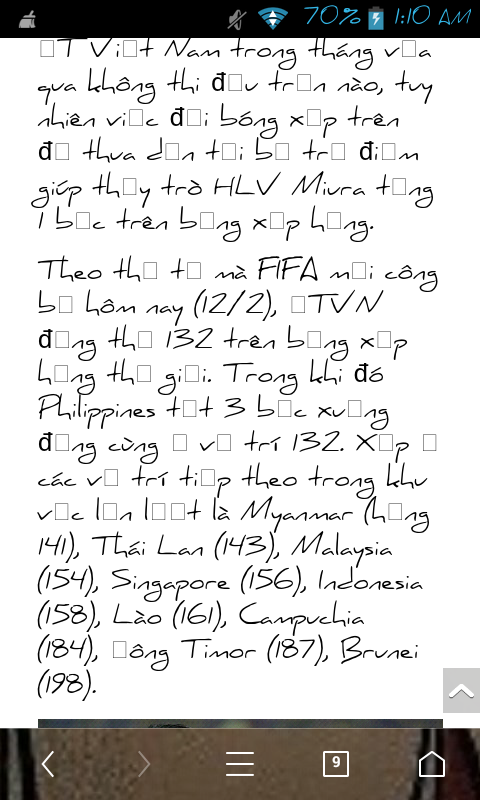 70% 1:10 AM
□T Vi□t Nam trong tháng v□a
qua không thi đ□u tr□n nào, tuy
nhiên vi□c đ□i bóng x□p trên
đ□ thua d□n t□i b□ tr□ đi□m
giúp th□y trò HLV Miura t□ng
1 b□c trên b□ng x□p h□ng.
Theo th□ t□ mà FIFA m□i công
b□ hôm nay (12/2), □TVN
đ□ng th□ 132 trên b□ng x□p
h□ng th□ gi□i. Trong khi đó
Philippines t□t 3 b□c xu□ng
đ□ng cùng □ v□ trí 132. X□p □
các v□ trí ti□p theo trong khu
v□c l□n l□□t là Myanmar (h□ng
141), Thái Lan (143), Malaysia
(154), Singapore (156), Indonesia
(158), Lào (161), Campuchia
(184), □ông Timor (187), Brunei
(198).
9